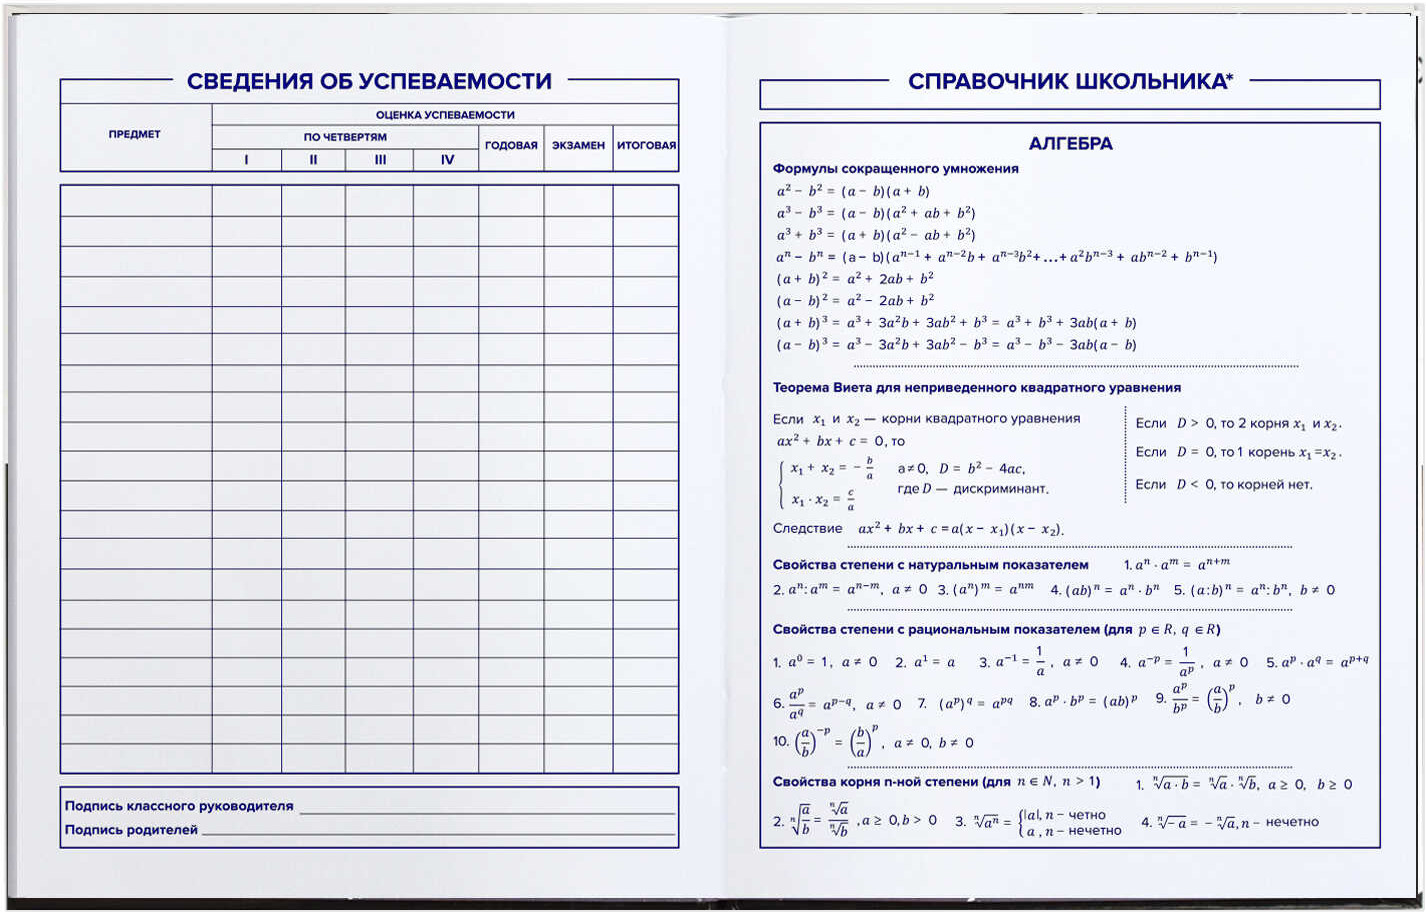 СВЕДЕНИЯ ОБ УСПЕВАЕМОСТИ
ПРЕДМЕТ
ОЦЕНКА УСПЕВАЕМОСТИ
ПО ЧЕТВЕРТЯМ
ГОДОВАЯ ЭКЗАМЕН ИТОГОВАЯ
I II III IV
Подпись классного руководителя
Подпись родителей
СПРАВОЧНИК ШКОЛЬНИКА*
АЛГЕБРА
Формулы сокращенного умножения
a² − b² = (a − b)(a + b)
a³ − b³ = (a − b)(a² + ab + b²)
a³ + b³ = (a + b)(a² − ab + b²)
aⁿ − bⁿ = (a − b)(aⁿ⁻¹ + aⁿ⁻²b + aⁿ⁻³b² + ... + a²bⁿ⁻³ + abⁿ⁻² + bⁿ⁻¹)
(a + b)² = a² + 2ab + b²
(a − b)² = a² − 2ab + b²
(a + b)³ = a³ + 3a²b + 3ab² + b³ = a³ + b³ + 3ab(a + b)
(a − b)³ = a³ − 3a²b + 3ab² − b³ = a³ − b³ − 3ab(a − b)
Теорема Виета для неприведенного квадратного уравнения
Если x₁ и x₂ — корни квадратного уравнения
ax² + bx + c = 0, то
{ x₁ + x₂ = − b/a a≠0, D = b² − 4ac,
x₁ · x₂ = c/a где D — дискриминант.
Если D > 0, то 2 корня x₁ и x₂.
Если D = 0, то 1 корень x₁ =x₂.
Если D < 0, то корней нет.
Следствие ax² + bx + c = a(x − x₁)(x − x₂).
Свойства степени с натуральным показателем 1. aⁿ · aᵐ = aⁿ⁺ᵐ
2. aⁿ : aᵐ = aⁿ⁻ᵐ, a ≠ 0 3. (aⁿ)ᵐ = aⁿᵐ 4. (ab)ⁿ = aⁿ · bⁿ 5. (a:b)ⁿ = aⁿ: bⁿ, b ≠ 0
Свойства степени с рациональным показателем (для p ∈ R, q ∈ R)
1. a⁰ = 1, a ≠ 0 2. a¹ = a 3. a⁻¹ = 1/a, a ≠ 0 4. a^(−p) = 1/a^p, a ≠ 0 5. a^p · a^q = a^(p+q)
6. a^p/a^q = a^(p−q), a ≠ 0 7. (a^p)^q = a^(pq) 8. a^p · b^p = (ab)^p 9. a^p/b^p = (a/b)^p, b ≠ 0
10. (a/b)^(−p) = (b/a)^p, a ≠ 0, b ≠ 0
Свойства корня n-ной степени (для n ∈ N, n > 1) 1. ⁿ√(a · b) = ⁿ√a · ⁿ√b, a ≥ 0, b ≥ 0
2. ⁿ√(a/b) = ⁿ√a/ⁿ√b, a ≥ 0, b > 0 3. ⁿ√(aⁿ) = { |a|, n − четно
a, n − нечетно
4. ⁿ√(−a) = − ⁿ√a, n − нечетно